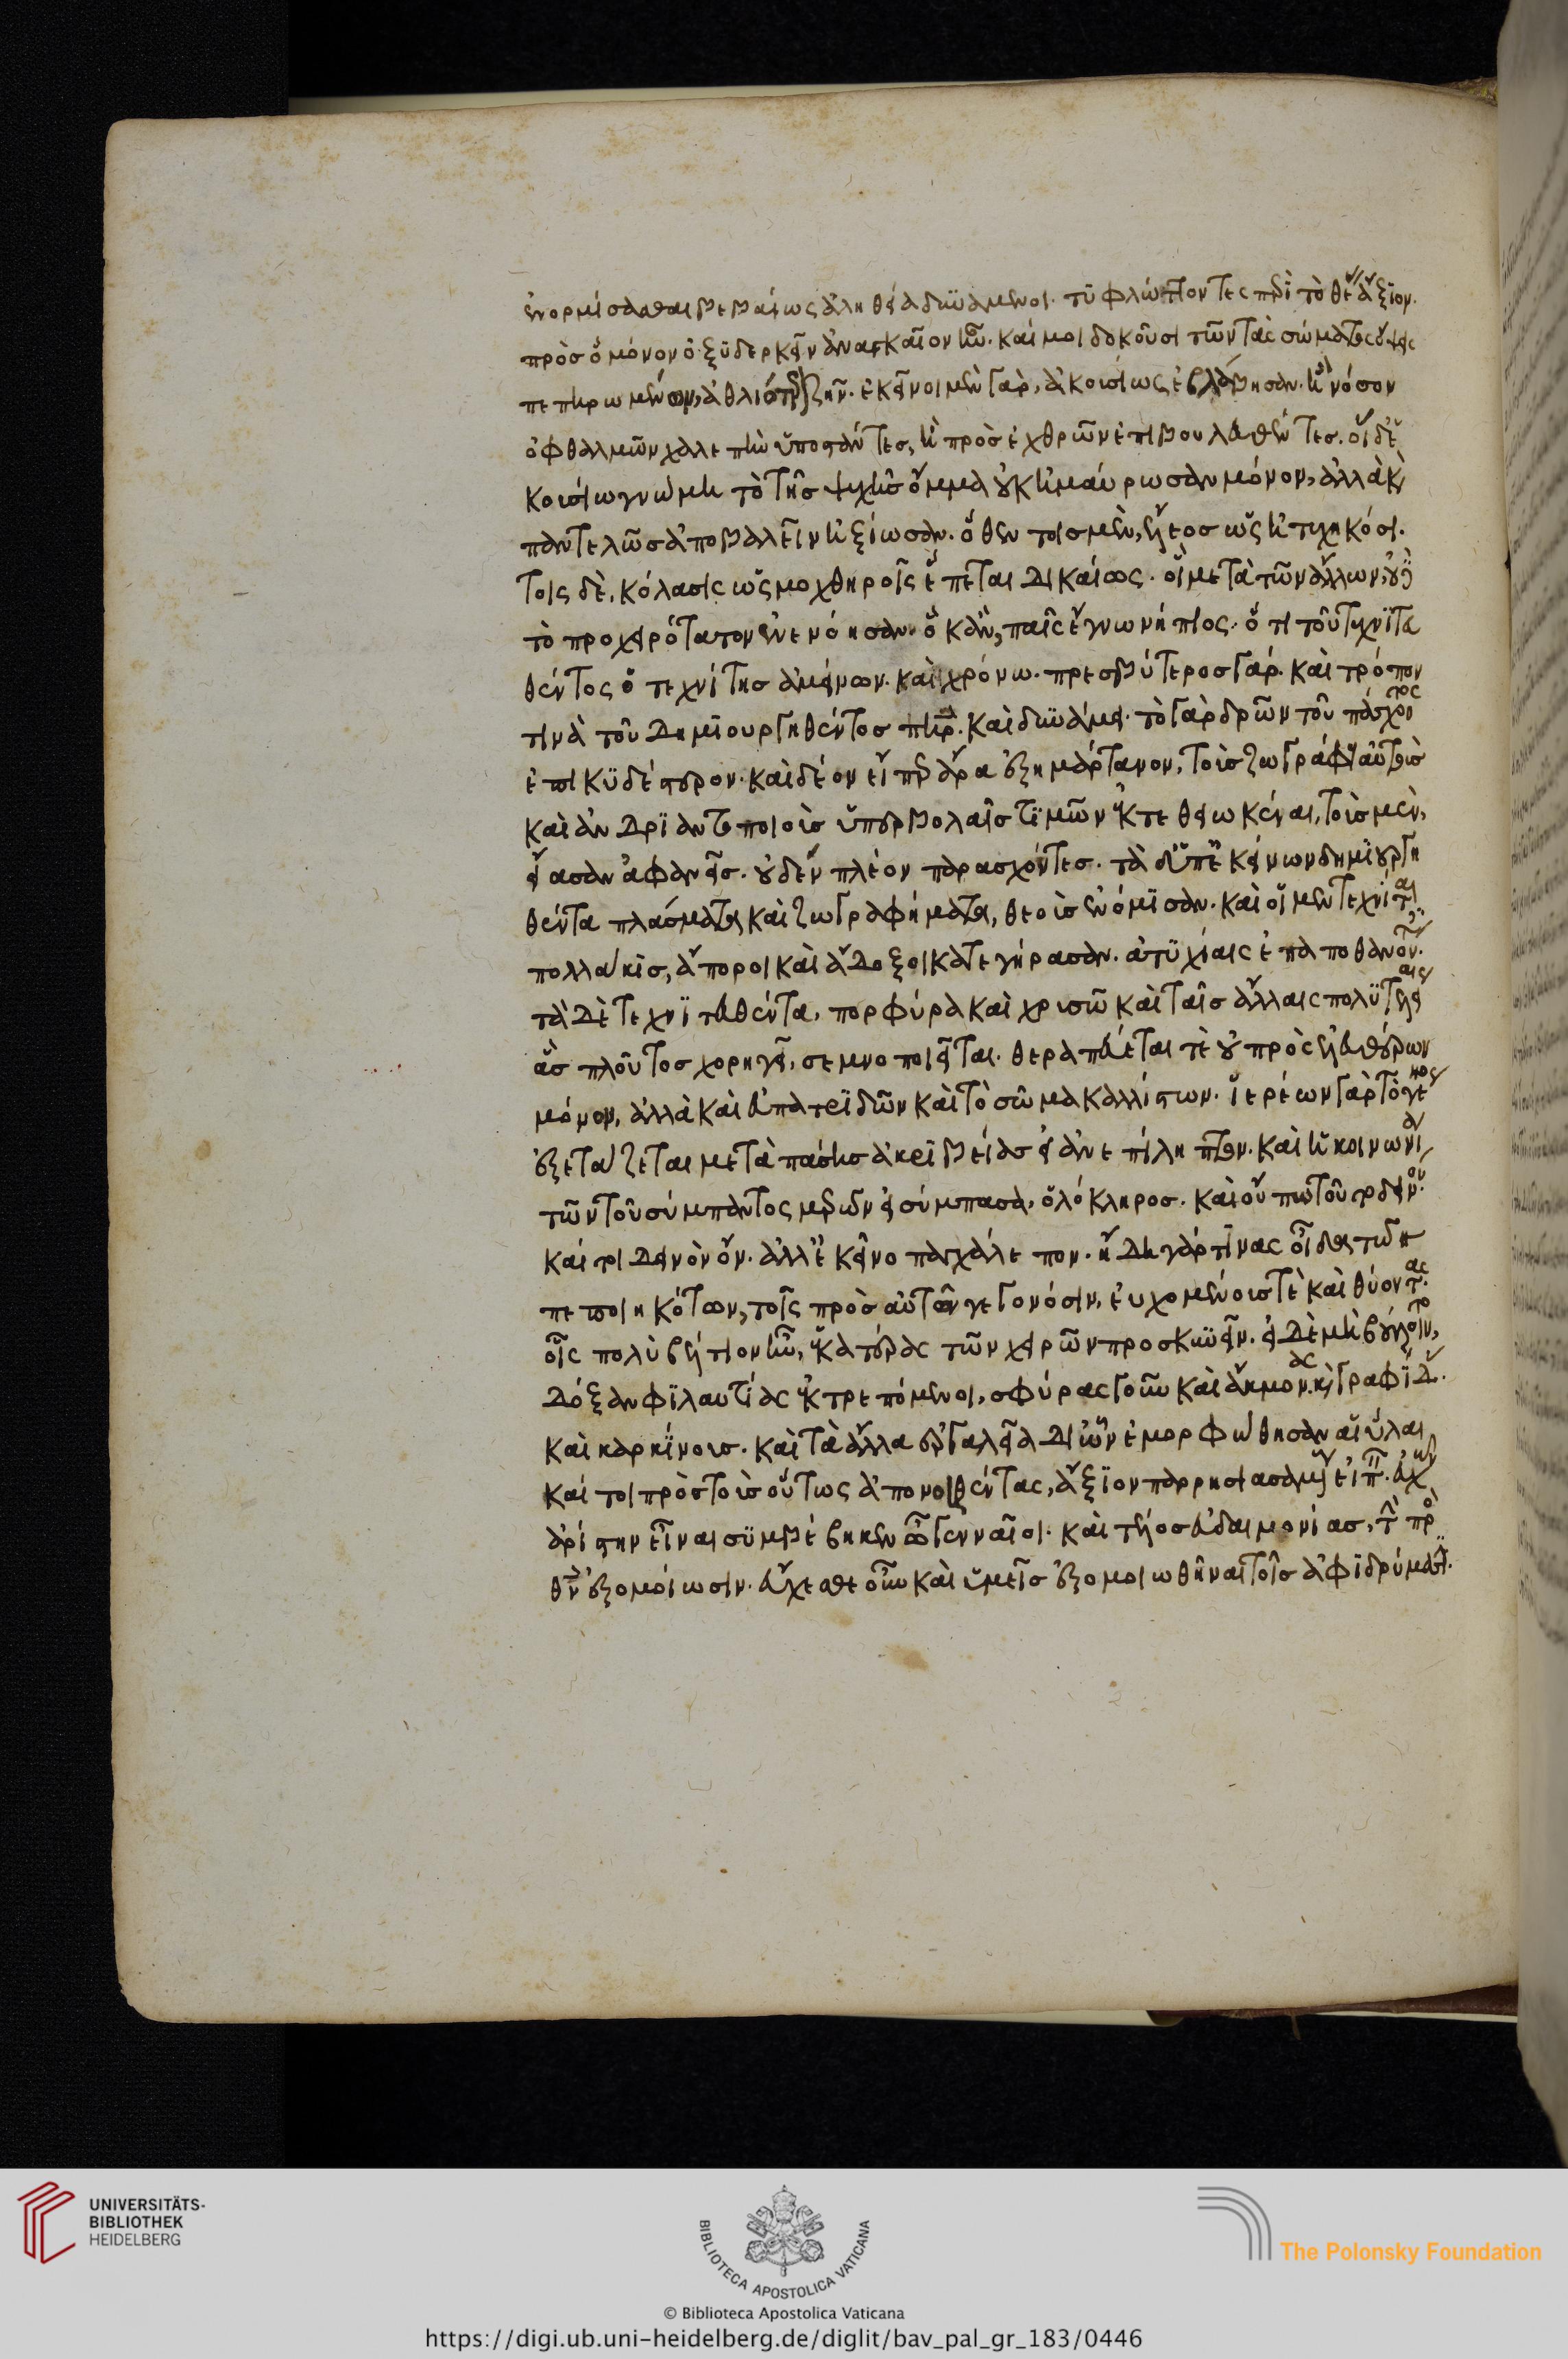 ἐνορμίσασθαι βεβαίως ἀληθείᾳ δυνάμενοι. τυφλώττοντες περὶ τὸ θέας ἄξιον.
πρὸς ὃ μόνον ὀξυδερκεῖν ἀναγκαῖον ἦν. καί μοι δοκοῦσι τῶν τὰς σώματος ὄψεις
πεπηρωμένων, ἀθλιώτερον ζῆν. ἐκεῖνοι μὲν γὰρ, ἀκουσίως ἐβλάβησαν. ἢ νόσον
ὀφθαλμῶν χαλεπὴν ὑποστάντες, ἢ πρὸς ἐχθρῶν ἐπιβουλευθέντες. οἱ δ' ἑ
κουσίω γνώμη τὸ τῆς ψυχῆς ὄμμα οὐκ ἠμαύρωσαν μόνον, ἀλλὰ κ(αὶ)
παντελῶς ἀποβαλεῖν ἠξίωσαν. ὅθεν τοῖς μὲν, ἔλεος ὡς ἠτυχηκόσι.
τοῖς δὲ, κόλασις ὡς μοχθηροῖς ἕπεται δικαίως. οἳ μετὰ τῶν ἄλλων, οὐδὲ
τὸ προχειρότατον ἐνενόησαν. ὃ κἂν, παῖς ἔγνω νήπιος. ὅτι τοῦ τεχνιτευ
θέντος ὁ τεχνίτης ἀμείνων. καὶ χρόνω. πρεσβύτερος γάρ. καὶ τρόπον
τινὰ τοῦ δημιουργηθέντος πατήρ. καὶ δυνάμει. τὸ γὰρ δρῶν τοῦ πάσχοντος
ἐπικυδέστερον. καὶ δέον εἴπερ ἄρα ἐξημάρτανον, τοὺς ζωγράφους αὐτοὺς
καὶ ἀνδριαντοποιοὺς ὑπερβολαῖς τιμῶν ἐκτεθειωκέναι, τοὺς μὲν,
εἴασαν ἀφανεῖς. οὐδὲν πλέον παρασχόντες. τὰ δ' ὑπ' ἐκείνων δημιουργη
θέντα πλάσματα καὶ ζωγραφήματα, θεοὺς ἐνόμισαν. καὶ οἱ μὲν τεχνῖται
πολλάκις, ἄποροι καὶ ἄδοξοι κατεγήρασαν. ἀτυχίαις ἐπαποθανόντες.
τὰ δὲ τεχνιτευθέντα, πορφύρα καὶ χρυσῶ καὶ ταῖς ἄλλαις πολυτελείαις
ἃς πλοῦτος χορηγεῖ, σεμνοποιεῖται. θεραπεύεται τὲ οὐ πρὸς ἐλευθέρων
μόνον, ἀλλὰ καὶ εὐπατριδῶν καὶ τὸ σῶμα καλλίστων. ἱερέων γὰρ τὸ γένος
ἐξετάζεται μετὰ πάσης ἀκριβείας εἰ ἀνεπίληπτον. καὶ ἡ κοινωνία
τῶν τοῦ σύμπαντος μερῶν εἰ σύμπασα, ὁλόκληρος. καὶ οὔπω τοῦτο δεινὸν.
καίτοι δεινὸν ὄν. ἀλλ' ἐκεῖνο παγχάλεπον. ἤδη γάρ τινας οἶδα τῶν
πεποιηκότων, τοῖς πρὸς αὐτῶν γεγονόσιν, εὐχομένους τὲ καὶ θύοντας.
οἷς πολὺ βέλτιον ἦν, ἑκατέρας τῶν χειρῶν προσκυνεῖν. εἰ δὲ μὴ ἐβούλοντο,
δόξαν φιλαυτίας ἐκτρεπόμενοι, σφύρας γοῦν καὶ ἄκμονας κ(αὶ) γραφίδας.
καὶ καρκίνους. καὶ τὰ ἄλλα ἐργαλεῖα δι' ὧν ἐμορφώθησαν αἱ ὗλαι
καίτοι πρὸς τοὺς οὕτως ἀπονοηθέντας, ἄξιον παρρησιασαμένους εἰπεῖν. εὐχῶν
ἀρίστην εἶναι συμβέβηκεν ὦ γενναῖοι. καὶ τέλος εὐδαιμονίας, τὴν πρὸς
θεὸν ἐξομοίωσιν. εὔχεσθε οὖν καὶ ὑμεῖς ἐξομοιωθῆναι τοῖς ἀφιδρύμασι.
UNIVERSITÄTS-
BIBLIOTHEK
HEIDELBERG
BIBLIOTECA APOSTOLICA VATICANA
The Polonsky Foundation
© Biblioteca Apostolica Vaticana
https://digi.ub.uni-heidelberg.de/diglit/bav_pal_gr_183/0446